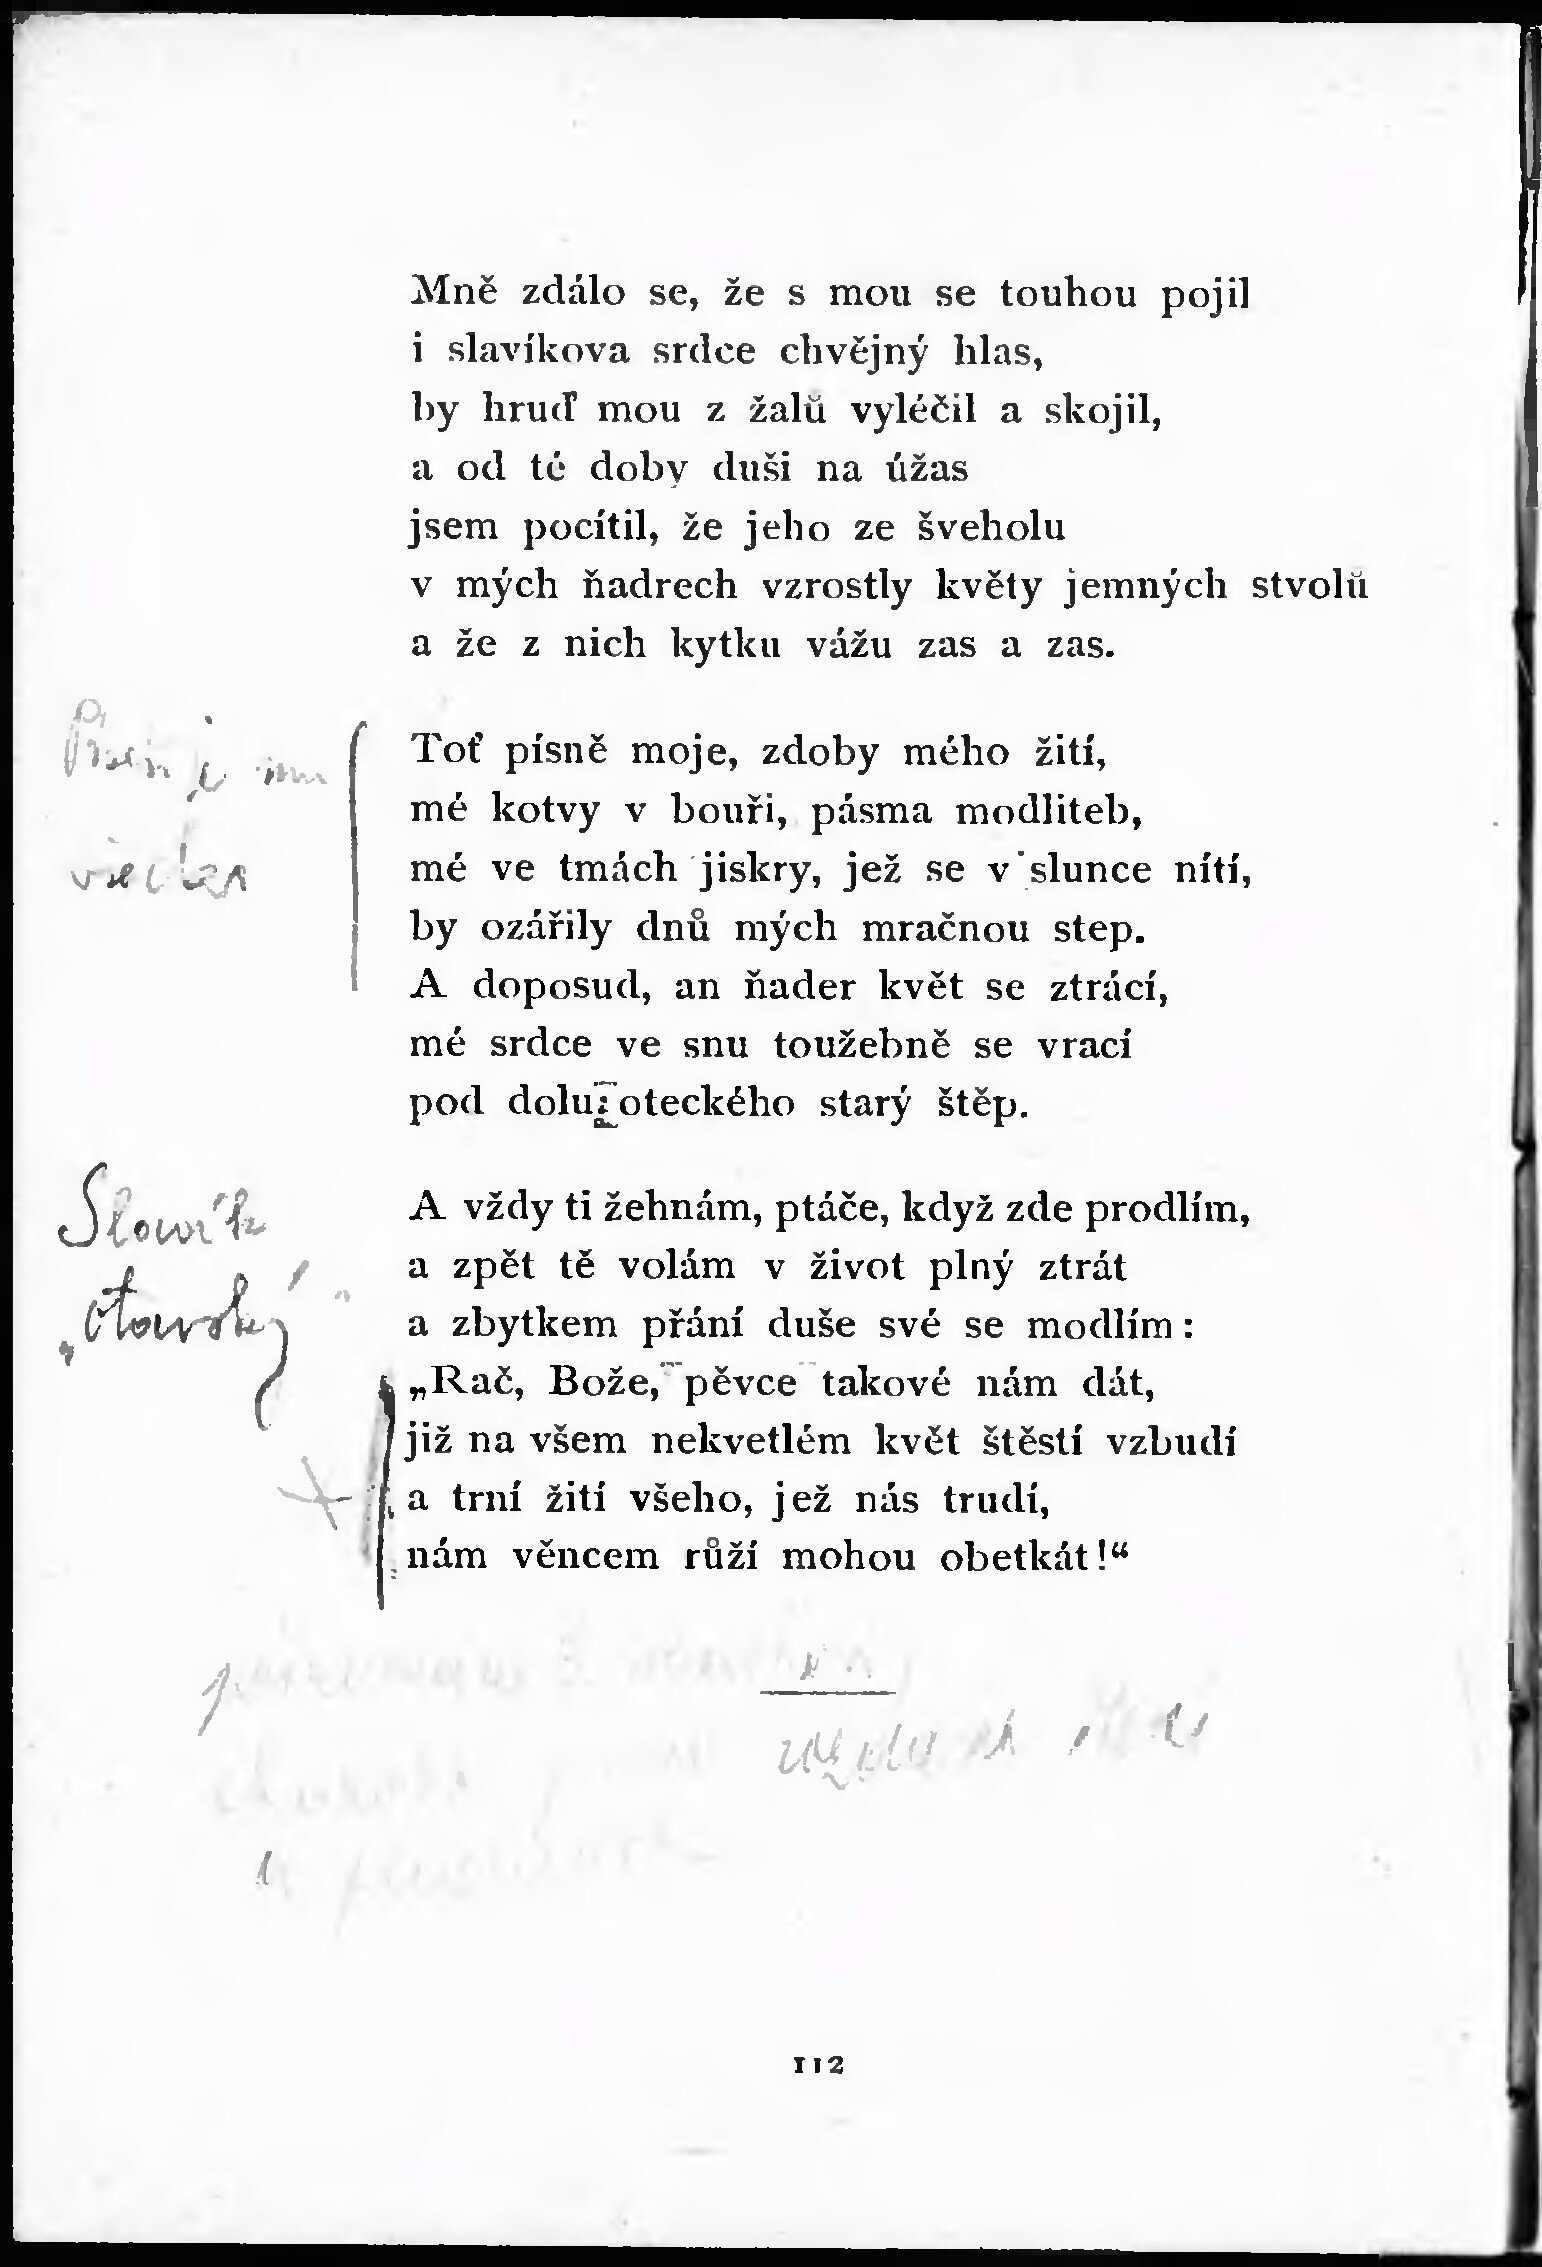 Mně zdálo se, že s mou se touhou pojil
i slavíkova srdce chvějný hlas,
by hruď mou z žalů vyléčil a skojil,
a od té doby duši na úžas
jsem pocítil, že jeho ze šveholu
v mých ňadrech vzrostly květy jemných stvolů
a že z nich kytku vážu zas a zas.
Toť písně moje, zdoby mého žití,
mé kotvy v bouři, pásma modliteb,
mé ve tmách jiskry, jež se v slunce nítí,
by ozářily dnů mých mračnou step.
A doposud, an ňader květ se ztrácí,
mé srdce ve snu toužebně se vrací
pod dolu oteckého starý štěp.
Slavík
otavský
A vždy ti žehnám, ptáče, když zde prodlím,
a zpět tě volám v život plný ztrát
a zbytkem přání duše své se modlím:
„Rač, Bože, pěvce takové nám dát,
již na všem nekvetlém květ štěstí vzbudí
a trní žití všeho, jež nás trudí,
nám věncem růží mohou obetkát!“
112